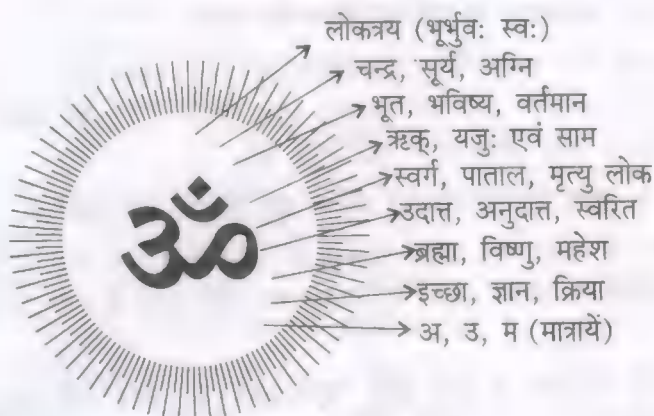 लोकत्रय (भूर्भुवः स्वः)
चन्द्र, सूर्य, अग्नि
भूत, भविष्य, वर्तमान
ऋक्, यजुः एवं साम
स्वर्ग, पाताल, मृत्यु लोक
उदात्त, अनुदात्त, स्वरित
ॐ
ब्रह्मा, विष्णु, महेश
इच्छा, ज्ञान, क्रिया
अ, उ, म (मात्रायें)